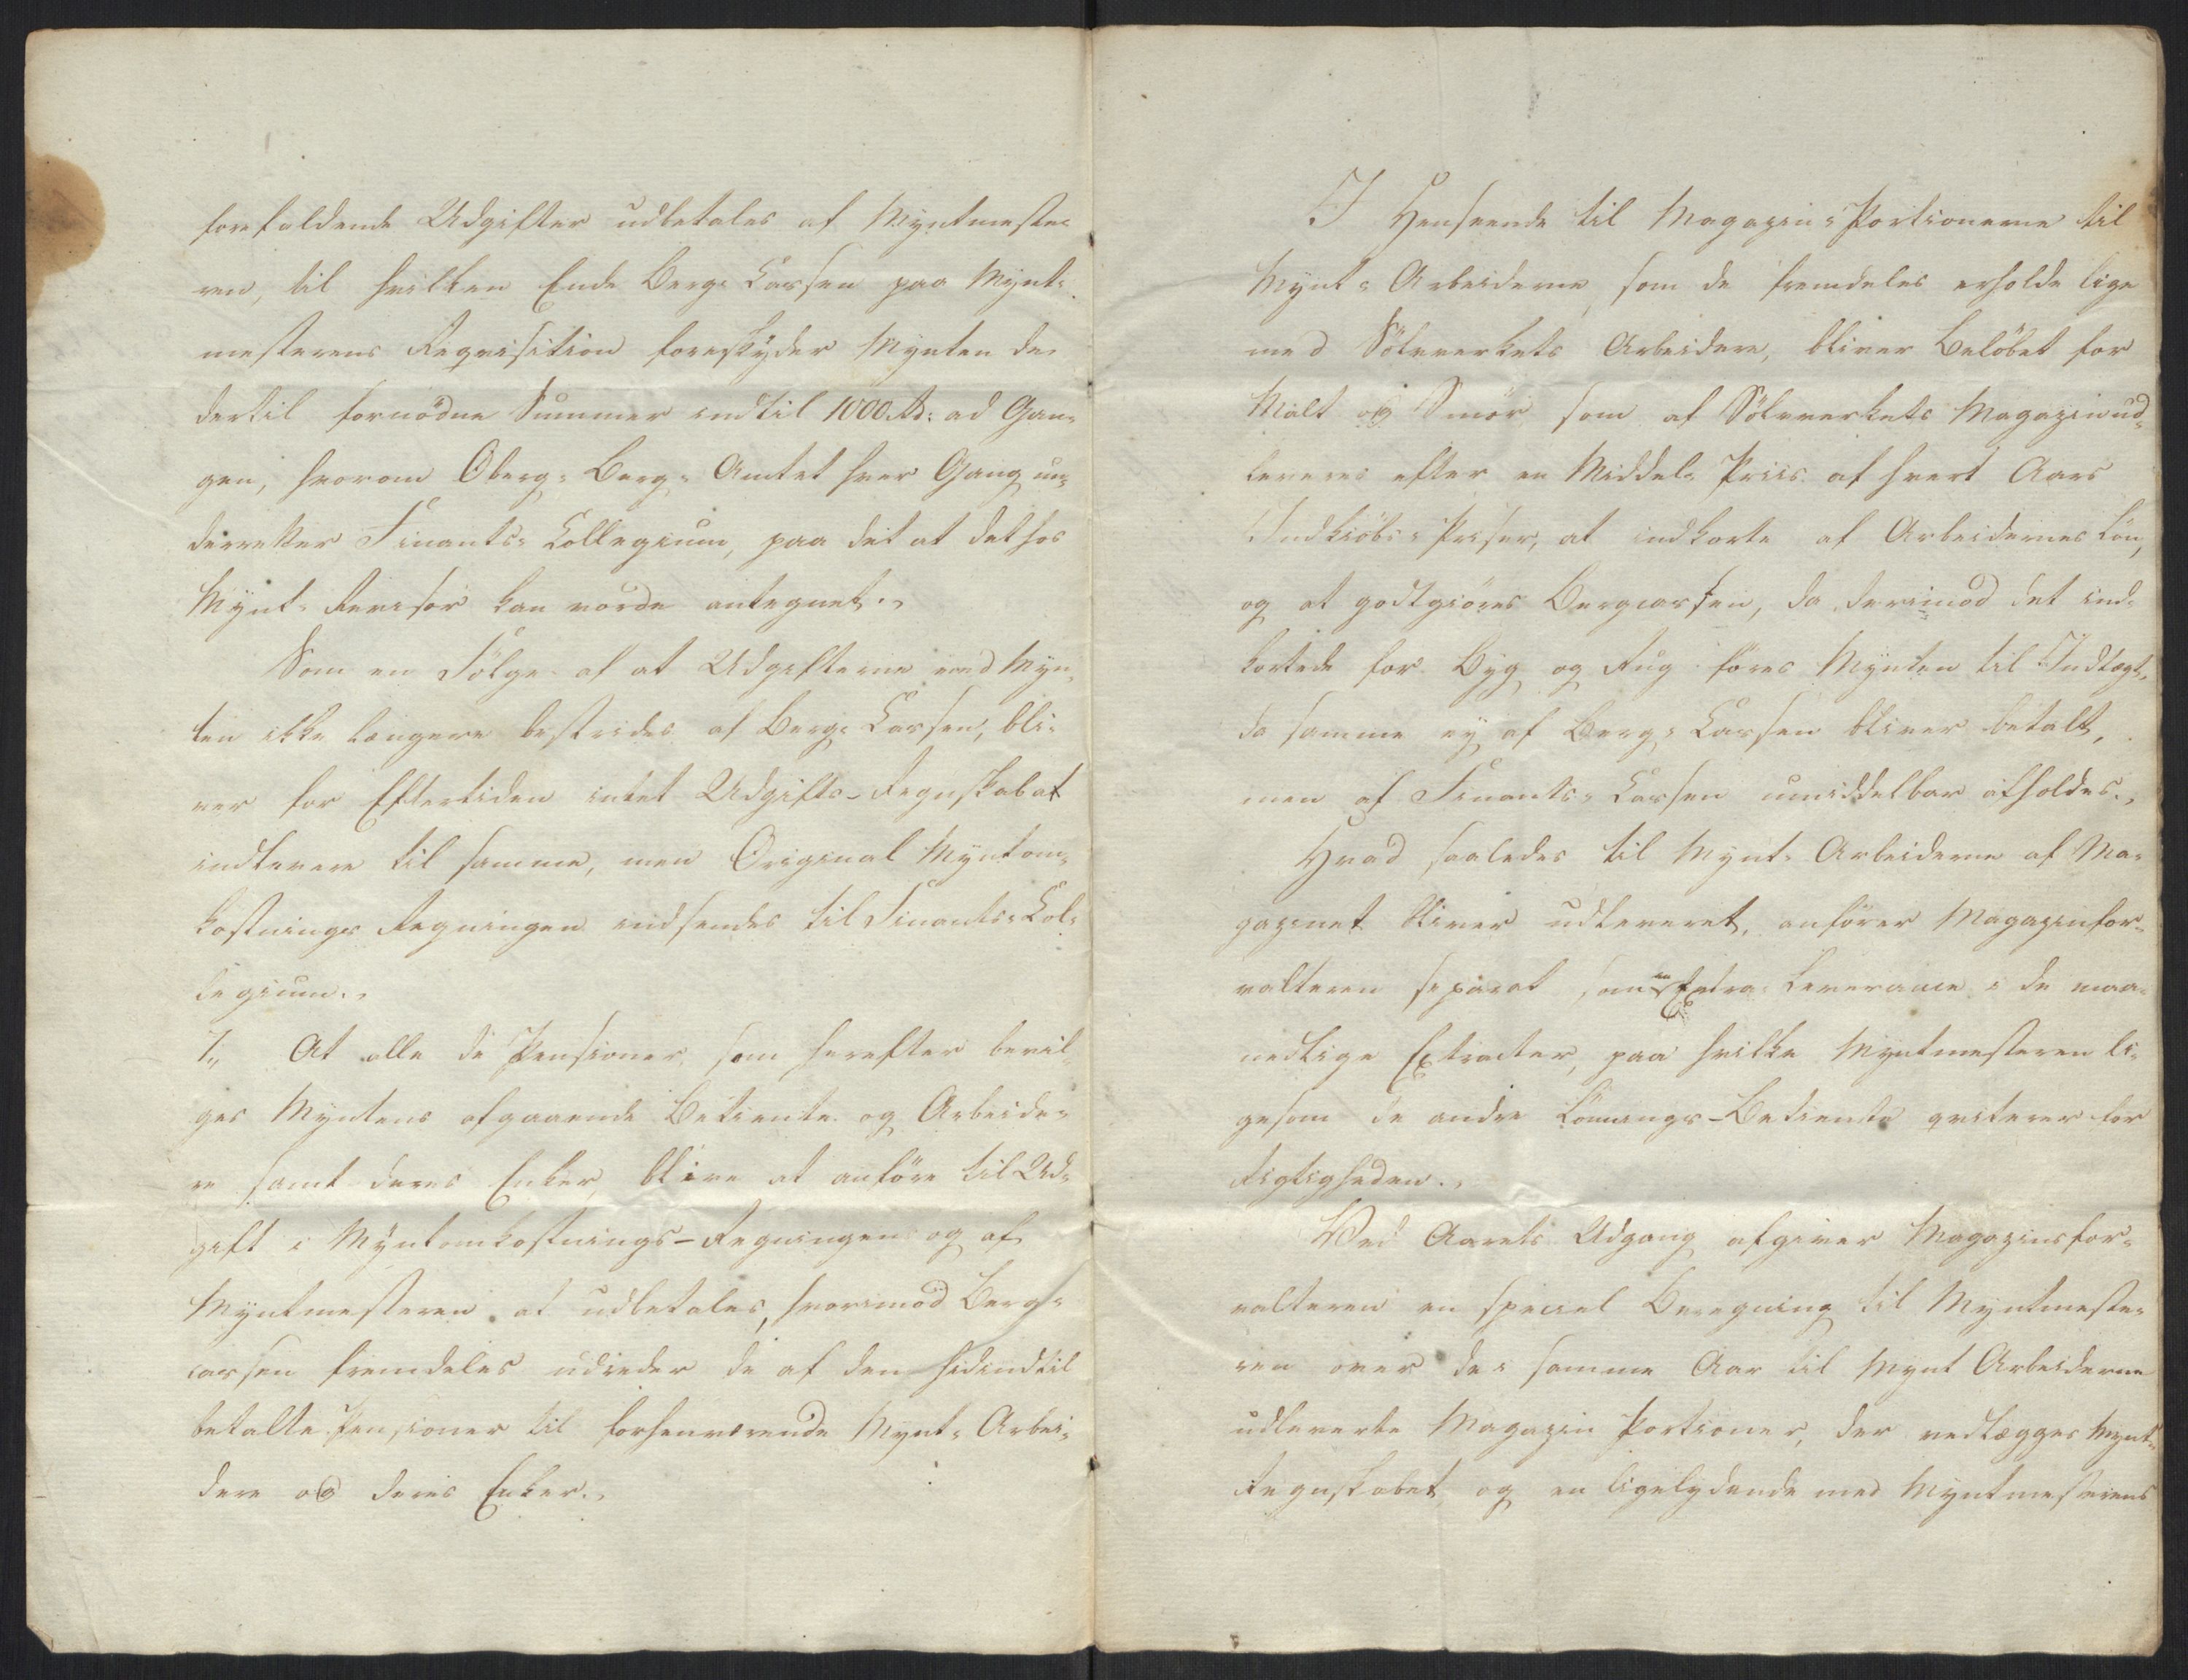 forefaldende Udgifter udbetales af Myntmeste-
ren, til hvilken Ende Berg-Cassen paa Mynt-
mesterens Reqvisition foreskyder Mynten de
dertil fornödne Summer indtil 1000 Rd: ad Gan-
gen, hvorom Oberg-Berg-Amtet hver Gang un-
derretter Finants-Collegium, paa det at det hos
Mynt-Revisor kan vorde antegnet.
Som en Fölge af at Udgifterne ved Myn-
ten ikke længere bestrides af Berg-Cassen, bli-
ver for Eftertiden intet Udgifts-Regnskab at
indlevere til samme, men Original Myntom-
kostnings Regningen indsendes til Finants-Col-
legium.
7, At alle de Pensioner, som herefter bevil-
ges Myntens afgaaende Betiente og Arbeide-
re samt deres Enker, blive at anföre til Ud-
gift i Myntomkostnings-Regningen og af
Myntmesteren at udbetales, hvorimod Berg-
cassen fremdeles udreder de af den hidindtil
betalte Pensioner til forhenværende Mynt-Arbei-
dere og deres Enker.
I Henseende til Magazin-Portionerne til
Mynt-Arbeiderne, som de fremdeles erholde lige
med Sölvverkets Arbeidere, bliver Belöbet for
Malt og Smör som af Sölvverkets Magazin ud-
leveres efter en Middel-Priis af hvert Aars
Indkiöbs-Priser, at indkorte af Arbeidernes Lön,
og at godtgiöres Bergcassen, da derimod det ind-
kortede for Byg og Rug föres Mynten til Indtægt,
da samme ey af Berg-Cassen bliver betalt,
men af Finants-Cassen umiddelbar afholdes.
Hvad saaledes til Mynt-Arbeiderne af Ma-
gazinet bliver udleveret, anförer Magazinfor-
valteren separat som en Extra-Leverance i de maa-
nedlige Extracter, paa hvilke Myntmesteren li-
gesom de andre Lönnings-Bediente qviterer for
Rigtigheden.
Ved Aarets Udgang afgiver Magazinsfor-
valteren en speciel Beregning til Myntmeste-
ren over de i samme Aar til Mynt Arbeiderne
udleverte Magazin Portioner, der vedlægges Mynt-
Regnskabet, og en ligelydende med Myntmesterens